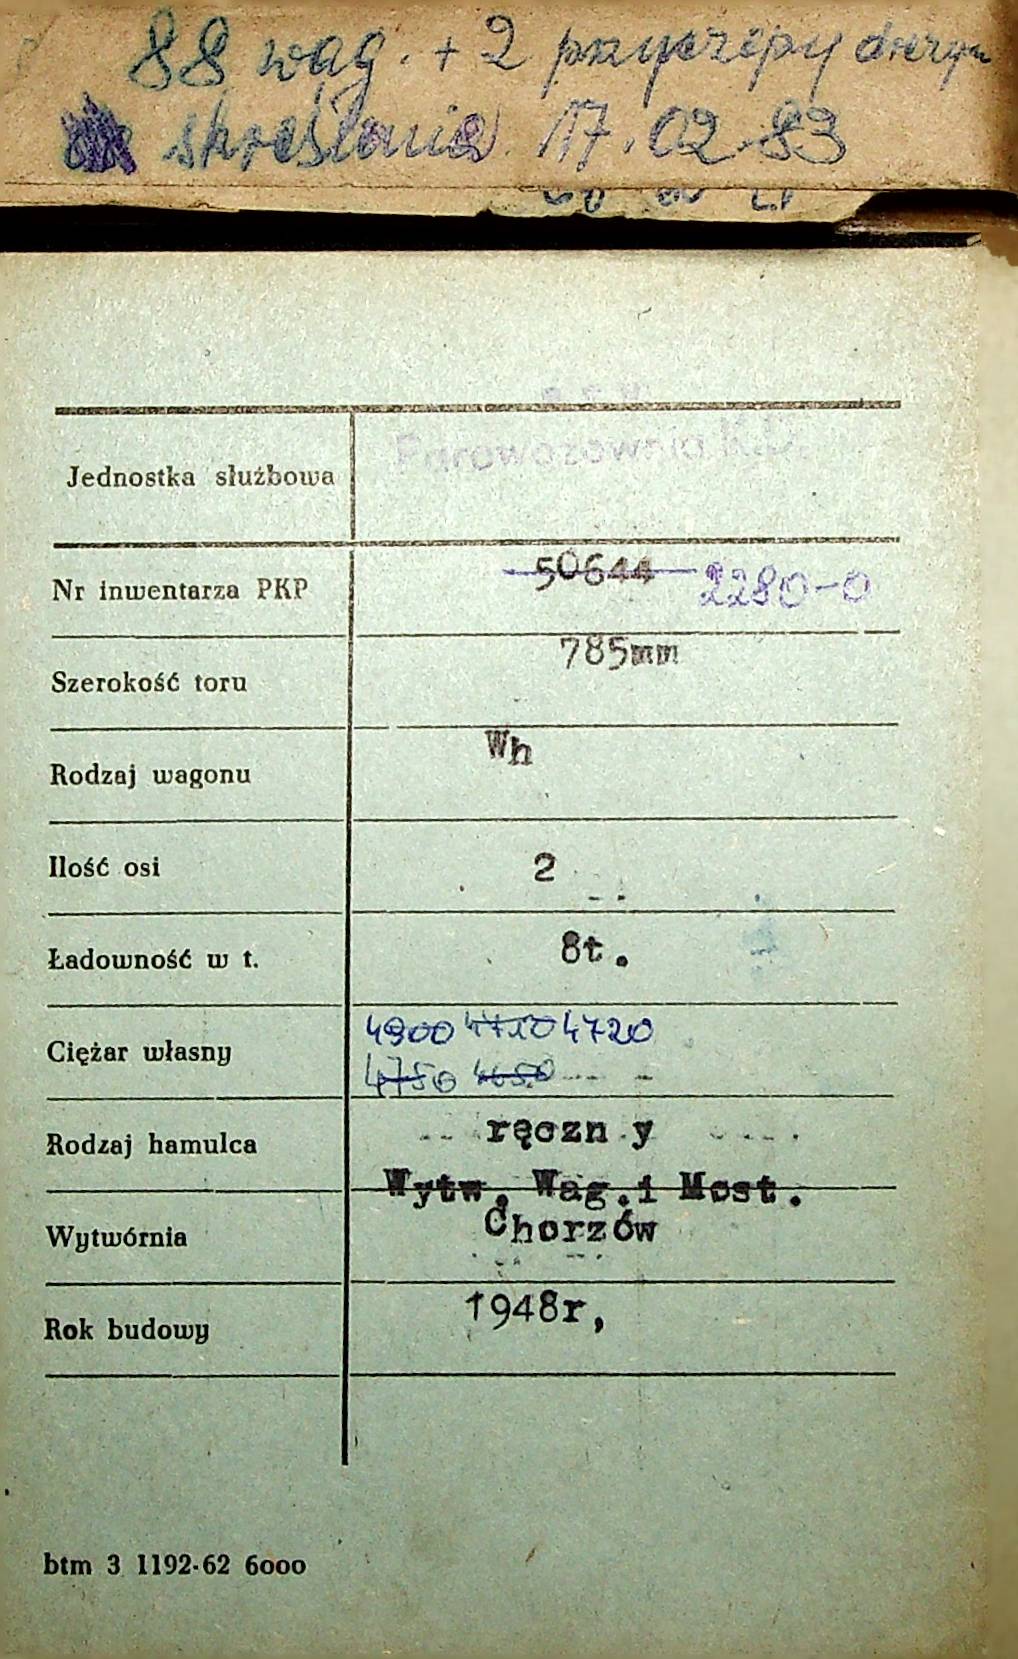 88 wag. + 2 przyczepy drezyn
skreślenia 17.02.83
Parowozownia K.D.
Jednostka służbowa
Nr inwentarza PKP 50644 2280-0
Szerokość toru 785mm
Rodzaj wagonu Wh
Ilość osi 2
Ładowność w t. 8t.
Ciężar własny 4900 4710 4720
4750 4650
Rodzaj hamulca ręczn y
Wytw. Wag.i Most.
Wytwórnia Chorzów
Rok budowy 1948r,
btm 3 1192-62 6000